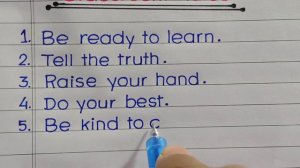 1. Be ready to learn.
2. Tell the truth.
3. Raise your hand.
4. Do your best.
5. Be kind to